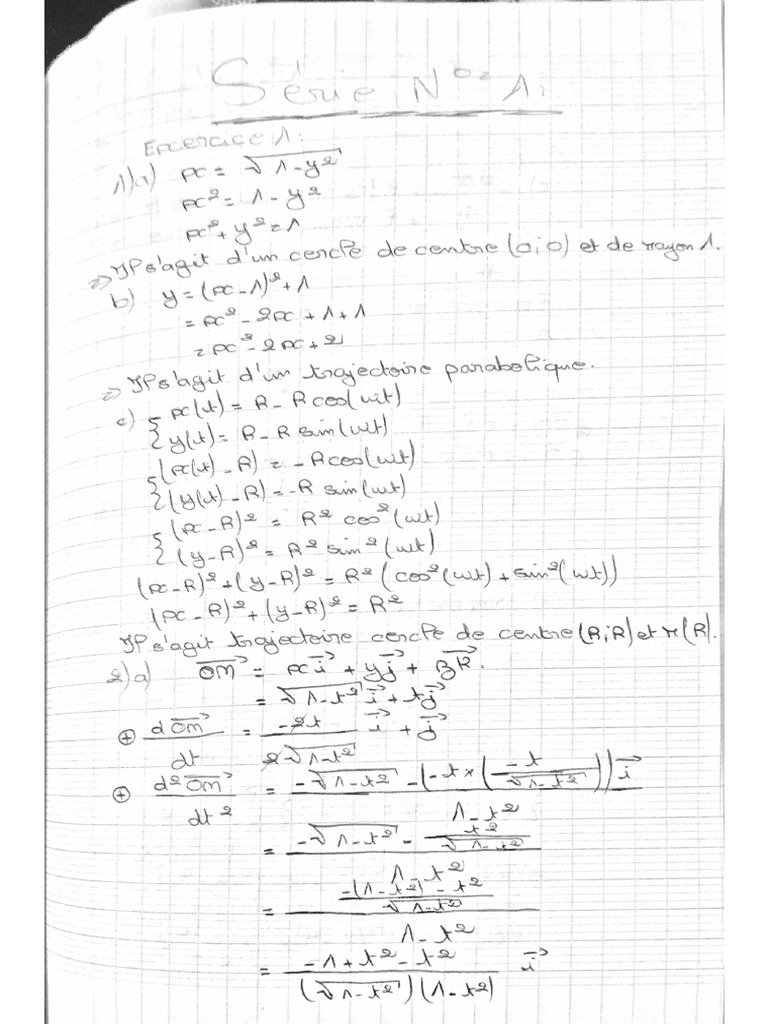 Série N° 1:
Exercice 1:
1) a) x = √(1-y²)
x² = 1 - y²
x² + y² = 1
=> Il s'agit d'un cercle de centre (0;0) et de rayon 1.
b) y = (x-1)² + 1
= x² - 2x + 1 + 1
= x² - 2x + 2
=> Il s'agit d'un trajectoire parabolique.
c) { x(t) = R - R cos(wt)
{ y(t) = R - R sin(wt)
{ (x(t) - R) = - R cos(wt)
{ (y(t) - R) = - R sin(wt)
{ (x - R)² = R² cos²(wt)
{ (y - R)² = R² sin²(wt)
(x-R)² + (y-R)² = R² (cos²(wt) + sin²(wt))
(x-R)² + (y-R)² = R²
Il s'agit trajectoire cercle de centre (R;R) et r(R).
2) a) OM⃗ = x i⃗ + y j⃗ + z k⃗.
= √(1-t²) i⃗ + t j⃗
⊕ dOM⃗/dt = -2t/(2√(1-t²)) i⃗ + j⃗
⊕ d²OM⃗/dt² = (-√(1-t²) - (-t × (-t/√(1-t²))))/(1-t²) i⃗
= (-√(1-t²) - t²/√(1-t²))/(1-t²)
= ((-(1-t²) - t²)/√(1-t²))/(1-t²)
= (-1 + t² - t²)/((√(1-t²))(1-t²)) i⃗